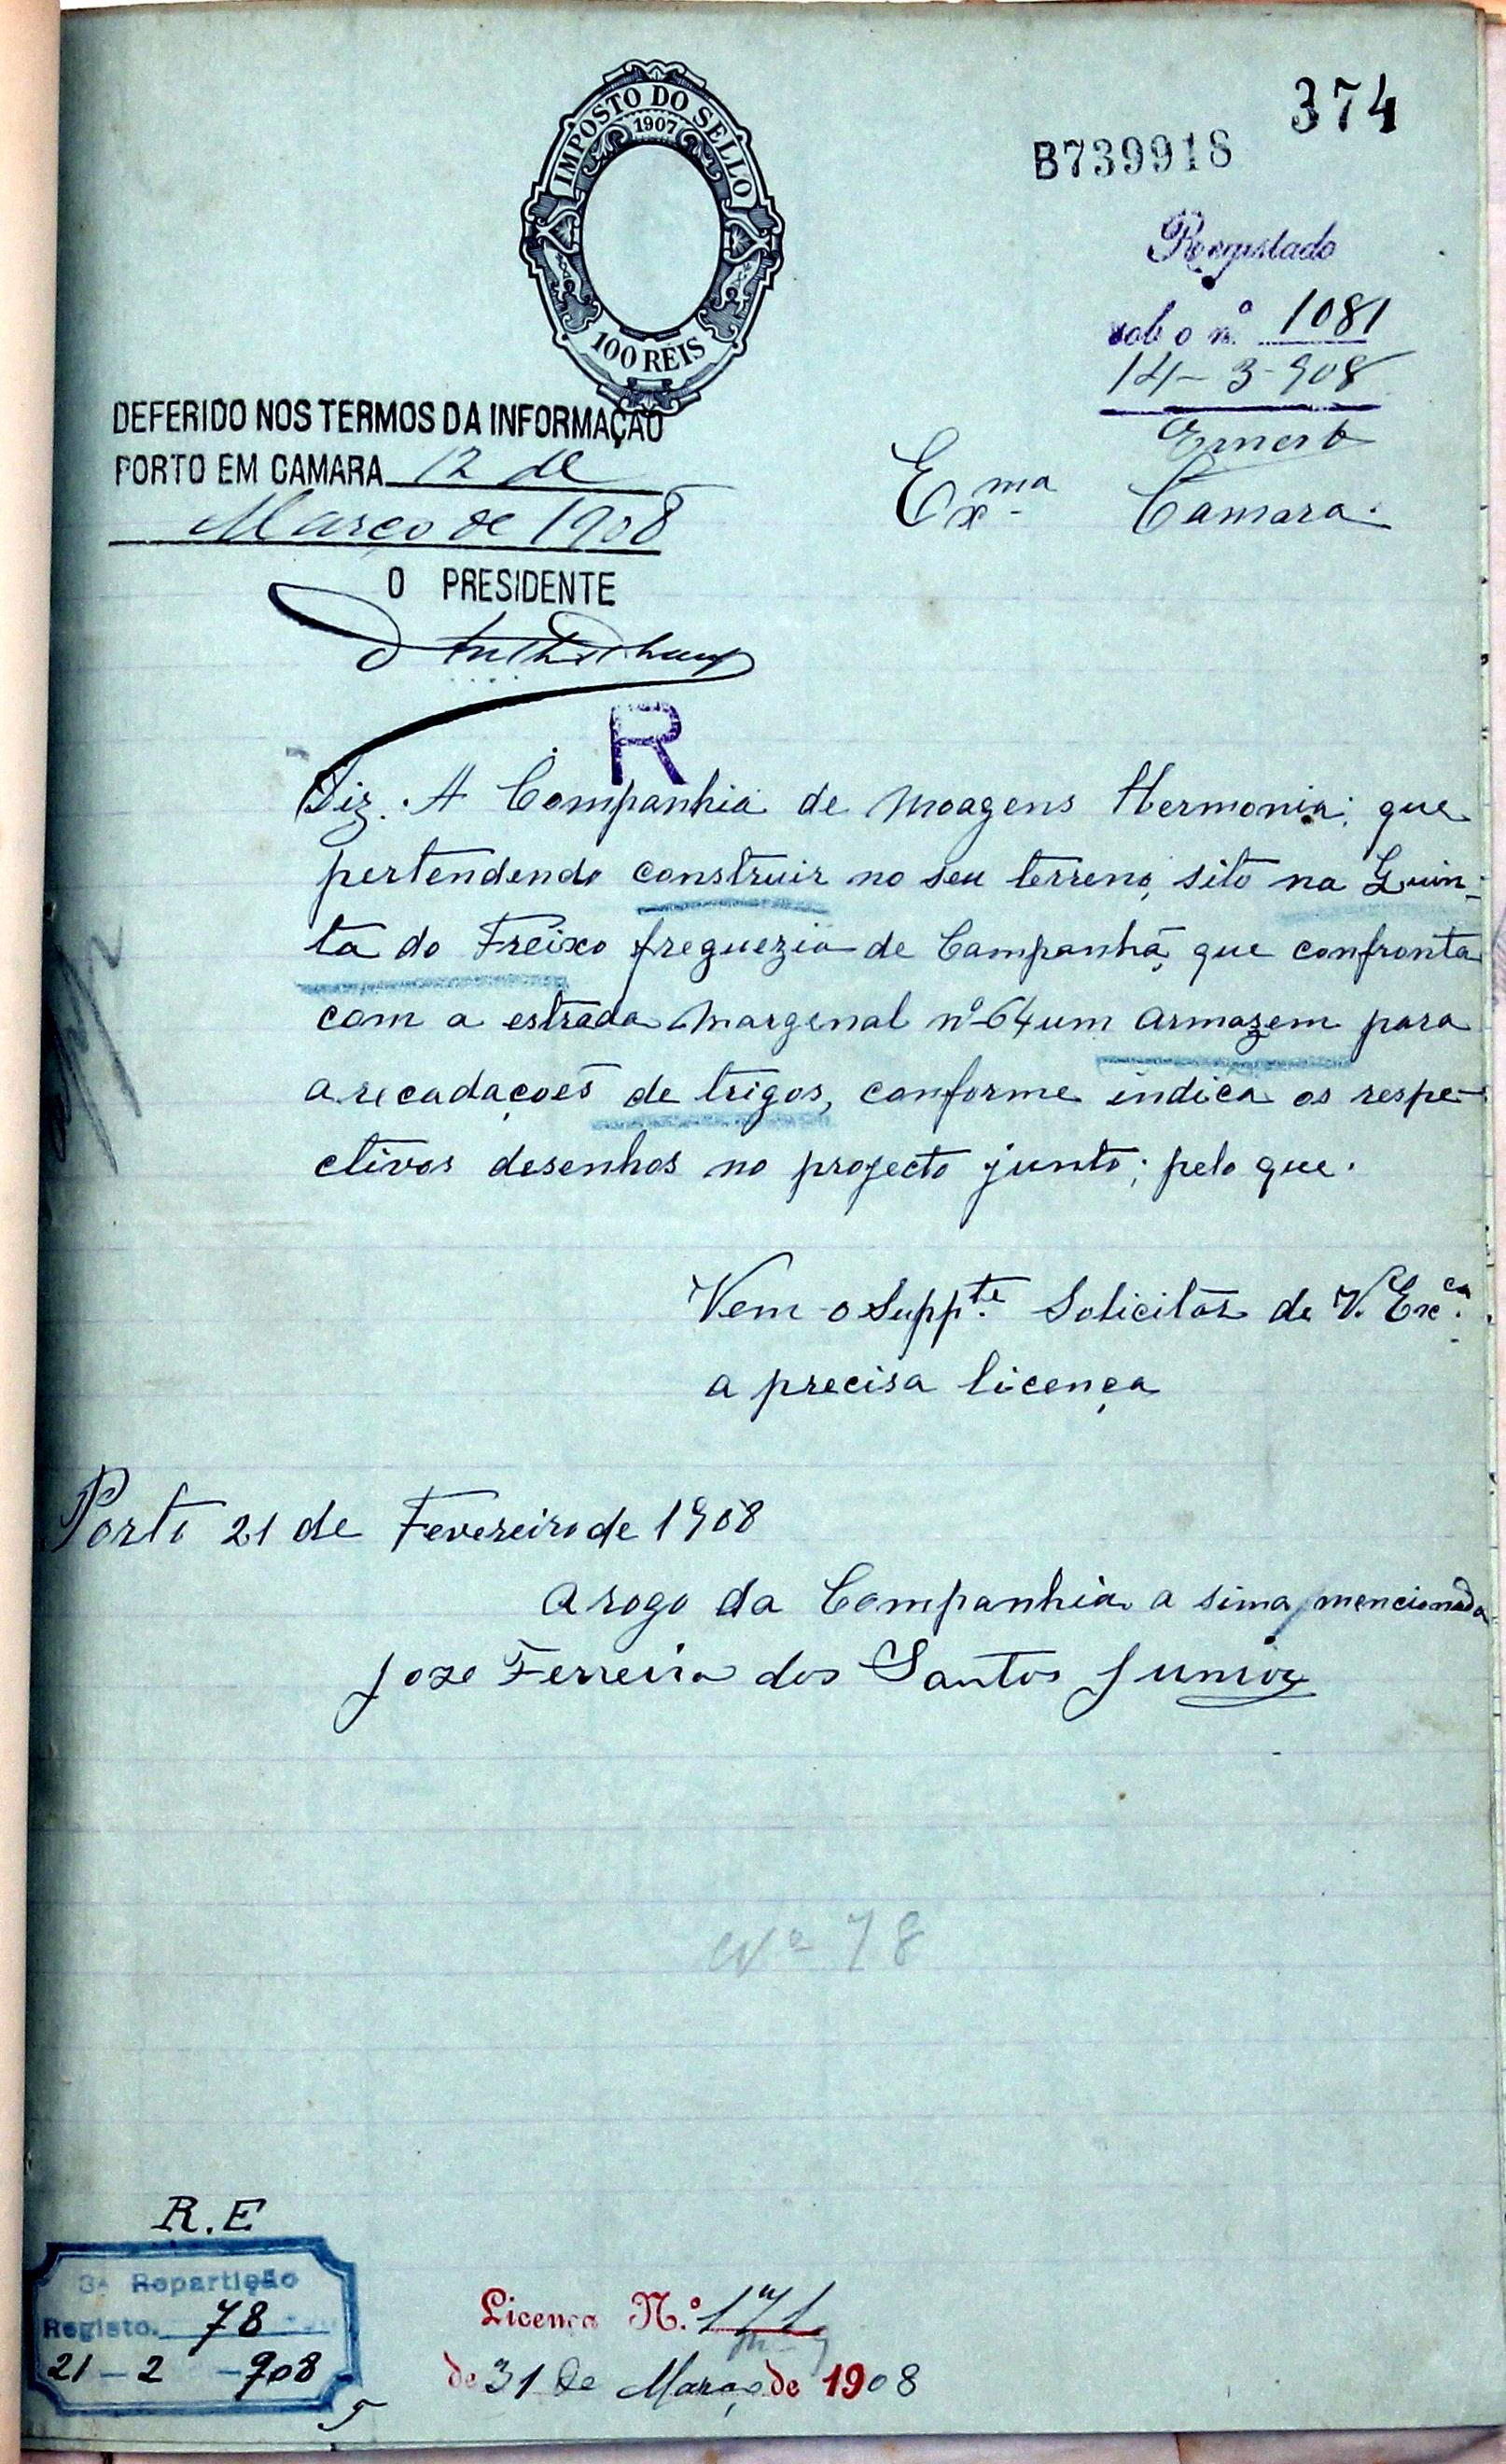 374
B739918
IMPOSTO DO SELLO
1907
100 RÉIS
Registado
sob o nº 1081
14-3-908
Ernesto
DEFERIDO NOS TERMOS DA INFORMAÇÃO
PORTO EM CAMARA 12 de
Março de 1908
O PRESIDENTE
Exma Camara.
R
Diz. A Companhia de Moagens Hermonia; que
pertendendo construir no seu terreno, sito na Quin-
ta do Freixo freguezia de Campanhã, que confronta
com a estrada Margenal nº 64 um armazem para
arecadaçoẽs de trigos, conforme indica os respe-
ctivos desenhos no projecto junto; pelo que.
Vem o Suppte. Solicitar de V. Exca.
a precisa licença
Porto 21 de Fevereiro de 1908
A rogo da Companhia a sima mencionada
Joze Ferreira dos Santos Junior
Nº 78
R.E
3ª Repartição
Registo. 78
21-2-908
Licença N.º 171
de 31 de Março de 1908